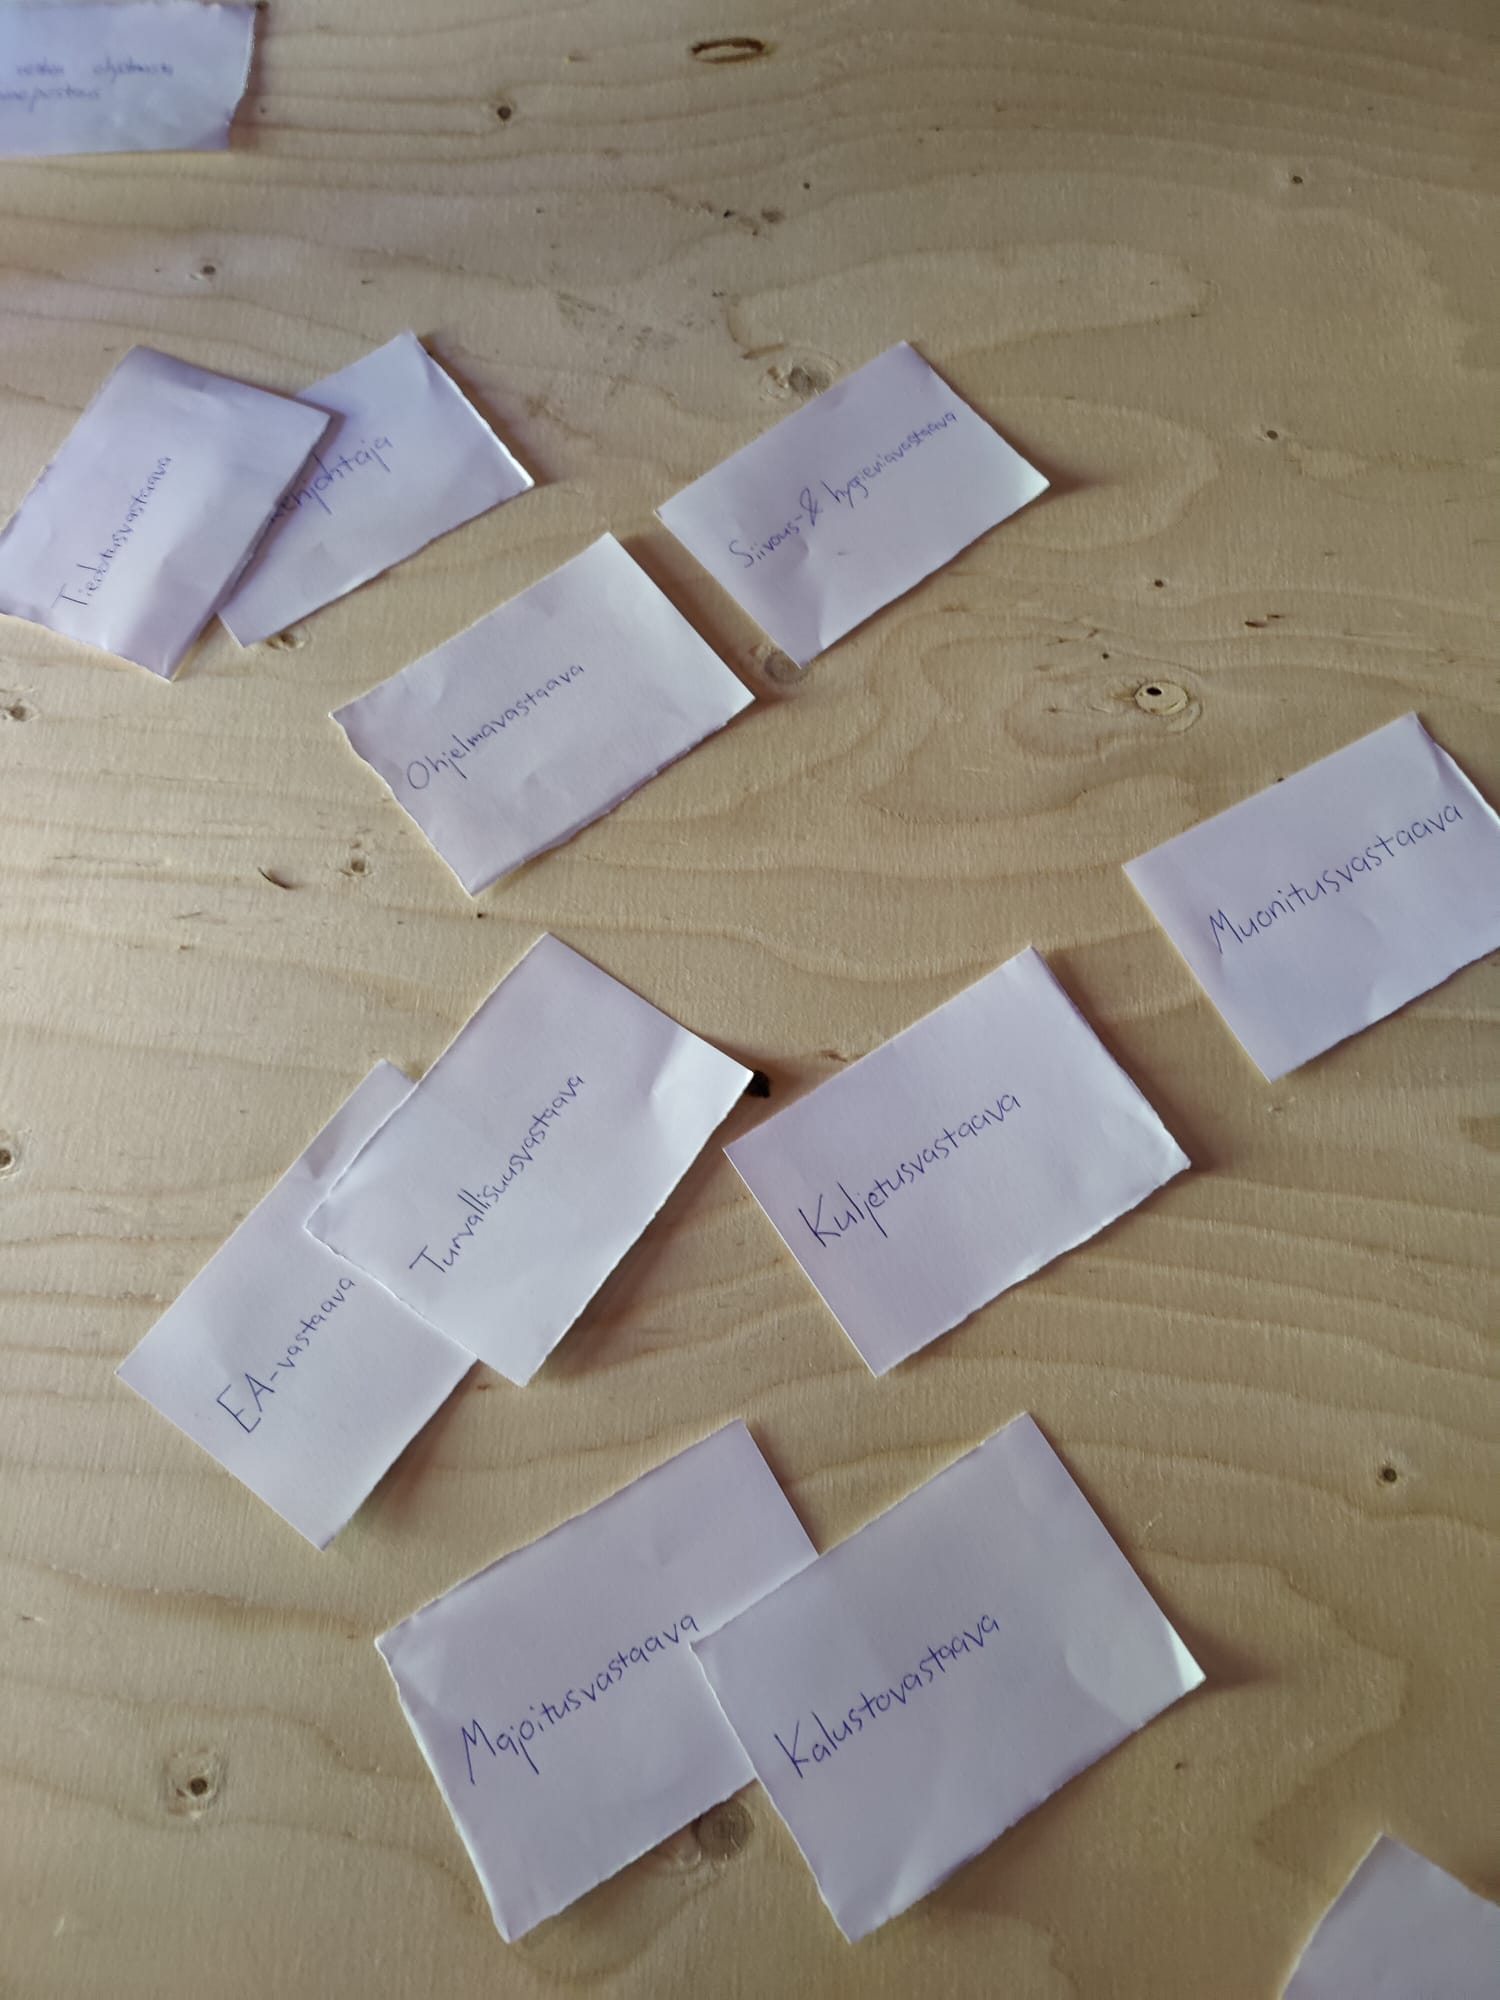 Tiedotusvastaava
Siivous- & hygieniavastaava
Ohjelmavastaava
Muonitusvastaava
Turvallisuusvastaava
Kuljetusvastaava
EA-vastaava
Majoitusvastaava
Kalustovastaava